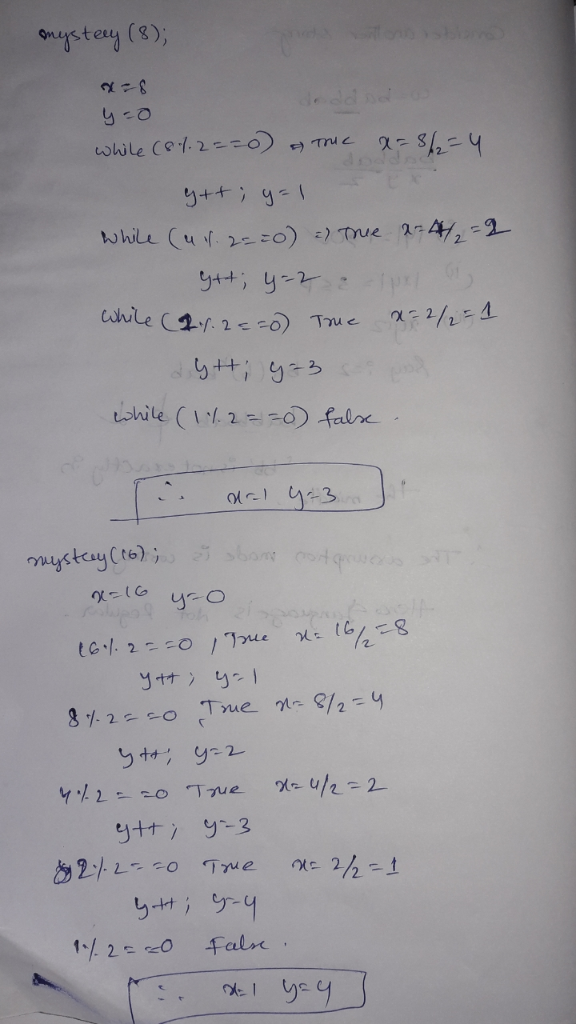 mystery (8);
x=8
y=0
while (8%2==0) ⇒ True x=8/2=4
y++; y=1
while (4%2==0) ⇒ True x=4/2=2
y++; y=2
while (2%2==0) True x=2/2=1
y++; y=3
while (1%2==0) false.
∴ x=1 y=3
mystery(16);
x=16 y=0
16%2==0, True x=16/2=8
y++; y=1
8%2==0 True x=8/2=4
y++; y=2
4%2==0 True x=4/2=2
y++; y=3
2%2==0 True x=2/2=1
y++; y=4
1%2==0 False.
∴ x=1 y=4